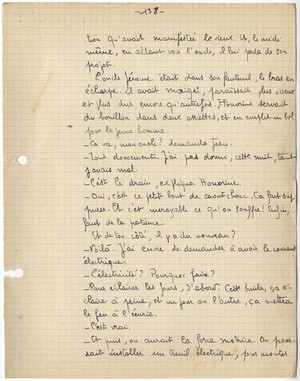 -138-
tion qu'avait manifestée le vieux Us, le midi
même, en allant voir l'oncle, il lui parla de son
projet.
L'oncle Jérôme était dans son fauteuil, le bras en
écharpe. Il avait maigri, paraissait plus osseux
et plus dur encore qu'autrefois. Honorine servait
du bouillon dans deux assiettes, et en emplit un bol
pour le jeune homme.
- Ca va, mon oncle? demanda Jean.
- Tout doucement. J'ai pas dormi, cette nuit, tant
j'avais mal.
- C'est le drain, expliqua Honorine.
- Oui, c'est ce petit bout de caoutchouc. Ca fait sup-
purer. Et c'est incroyable ce qu'on souffre! Enfin,
faut de la patience.
Et de ton côté, il y a du nouveau?
- Voilà. J'ai envie de demander à avoir le courant
électrique.
- L'électricité? Pourquoi faire?
- Pour éclairer les jours, d'abord. Cette huile, ça é-
claire à peine, et un jour ou l'autre, ça mettra
le feu à l'écurie.
- C'est vrai.
- Et puis, on aurait la force motrice. On pour-
rait installer un treuil électrique, pour monter